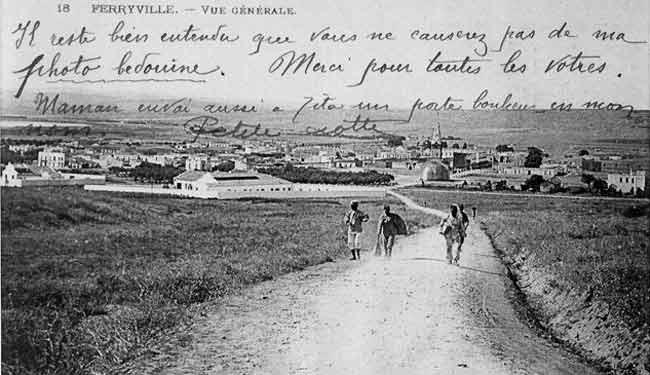 18 FERRYVILLE. — VUE GÉNÉRALE.
Il reste bien entendu que vous ne causerez pas de ma
photo bedouine. Merci pour toutes les votres.
Maman envoi aussi a Zita un porte bonheur en mon
nom. Petite